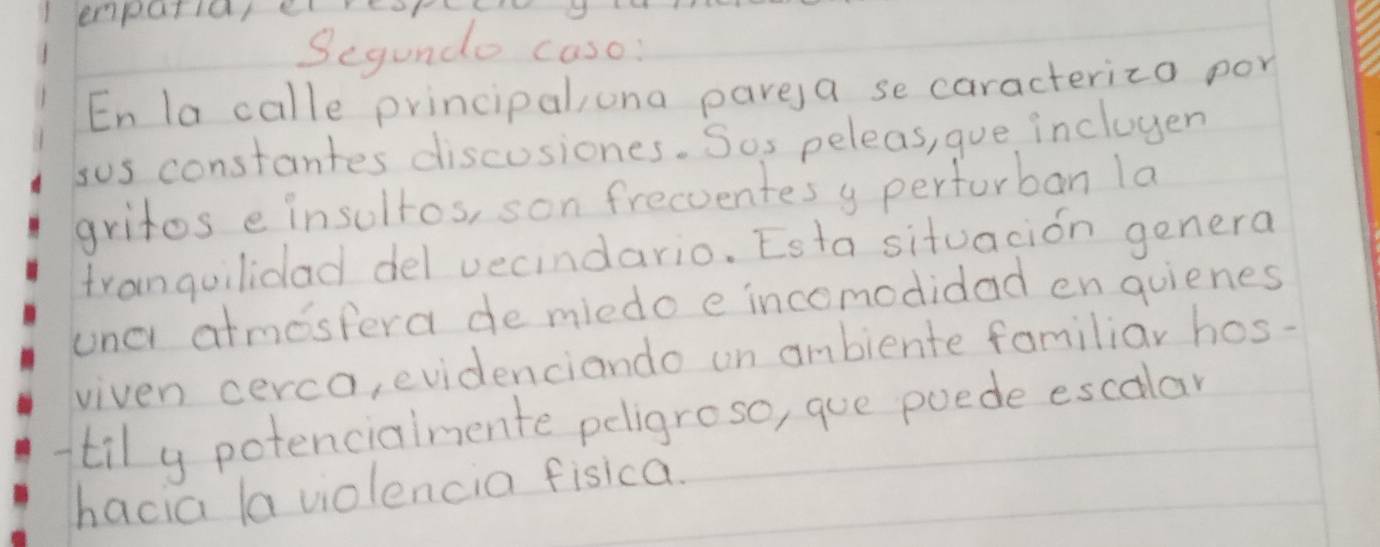 empatía, el
Segundo caso:
En la calle principal, una pareja se caracteriza por
sus constantes discusiones. Sus peleas, que incluyen
gritos e insultos, son frecuentes y perturban la
tranquilidad del vecindario. Esta situación genera
una atmósfera de miedo e incomodidad en quienes
viven cerca, evidenciando un ambiente familiar hos-
-til y potencialmente peligroso, que puede escalar
hacia la violencia fisica.